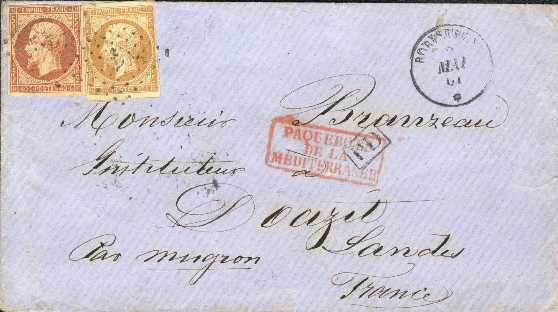 EMPIRE FRANC
EMPIRE FRANC
MAI
61
Monsieur Branzeau
PAQUEBOTS
DE LA
MEDITERRANEE
PD
Instituteur à
Doazit
Landes
Par mugron
France